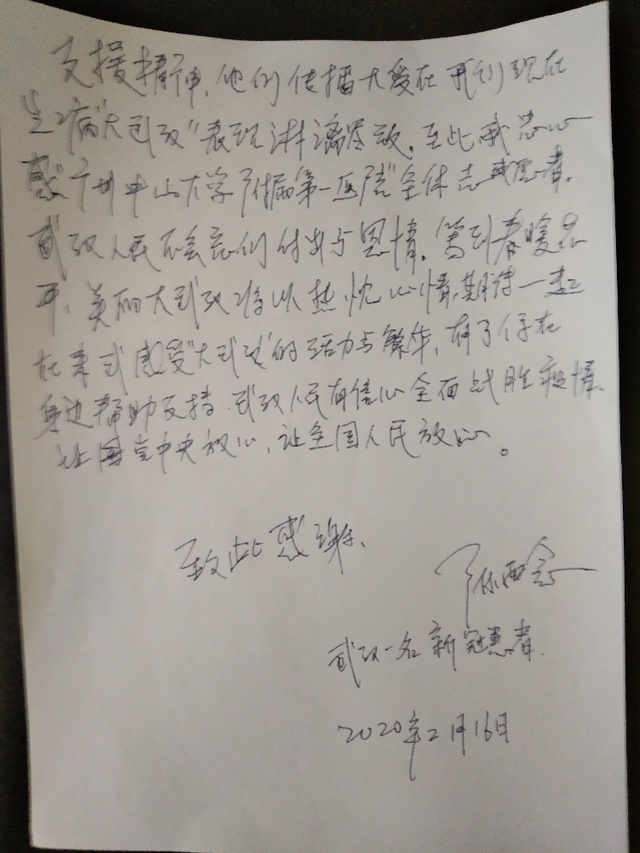 支援精神,他们传播大爱在我们现在
生病"大武汉"表现淋漓尽致,至此衷心
感广州中山大学附属第一医院全体志愿者,
武汉人民不会忘们付出与恩情,等到春暖
美丽大武汉将以热忱心情期待一起
在来感受"大武汉"的活力与繁华,有了你在
身边帮助支持,武汉人民有信心全面战胜疫情
让国党中央放心,让全国人民放心。
致此感谢、
武汉一名新冠患者.
2020年2月16日